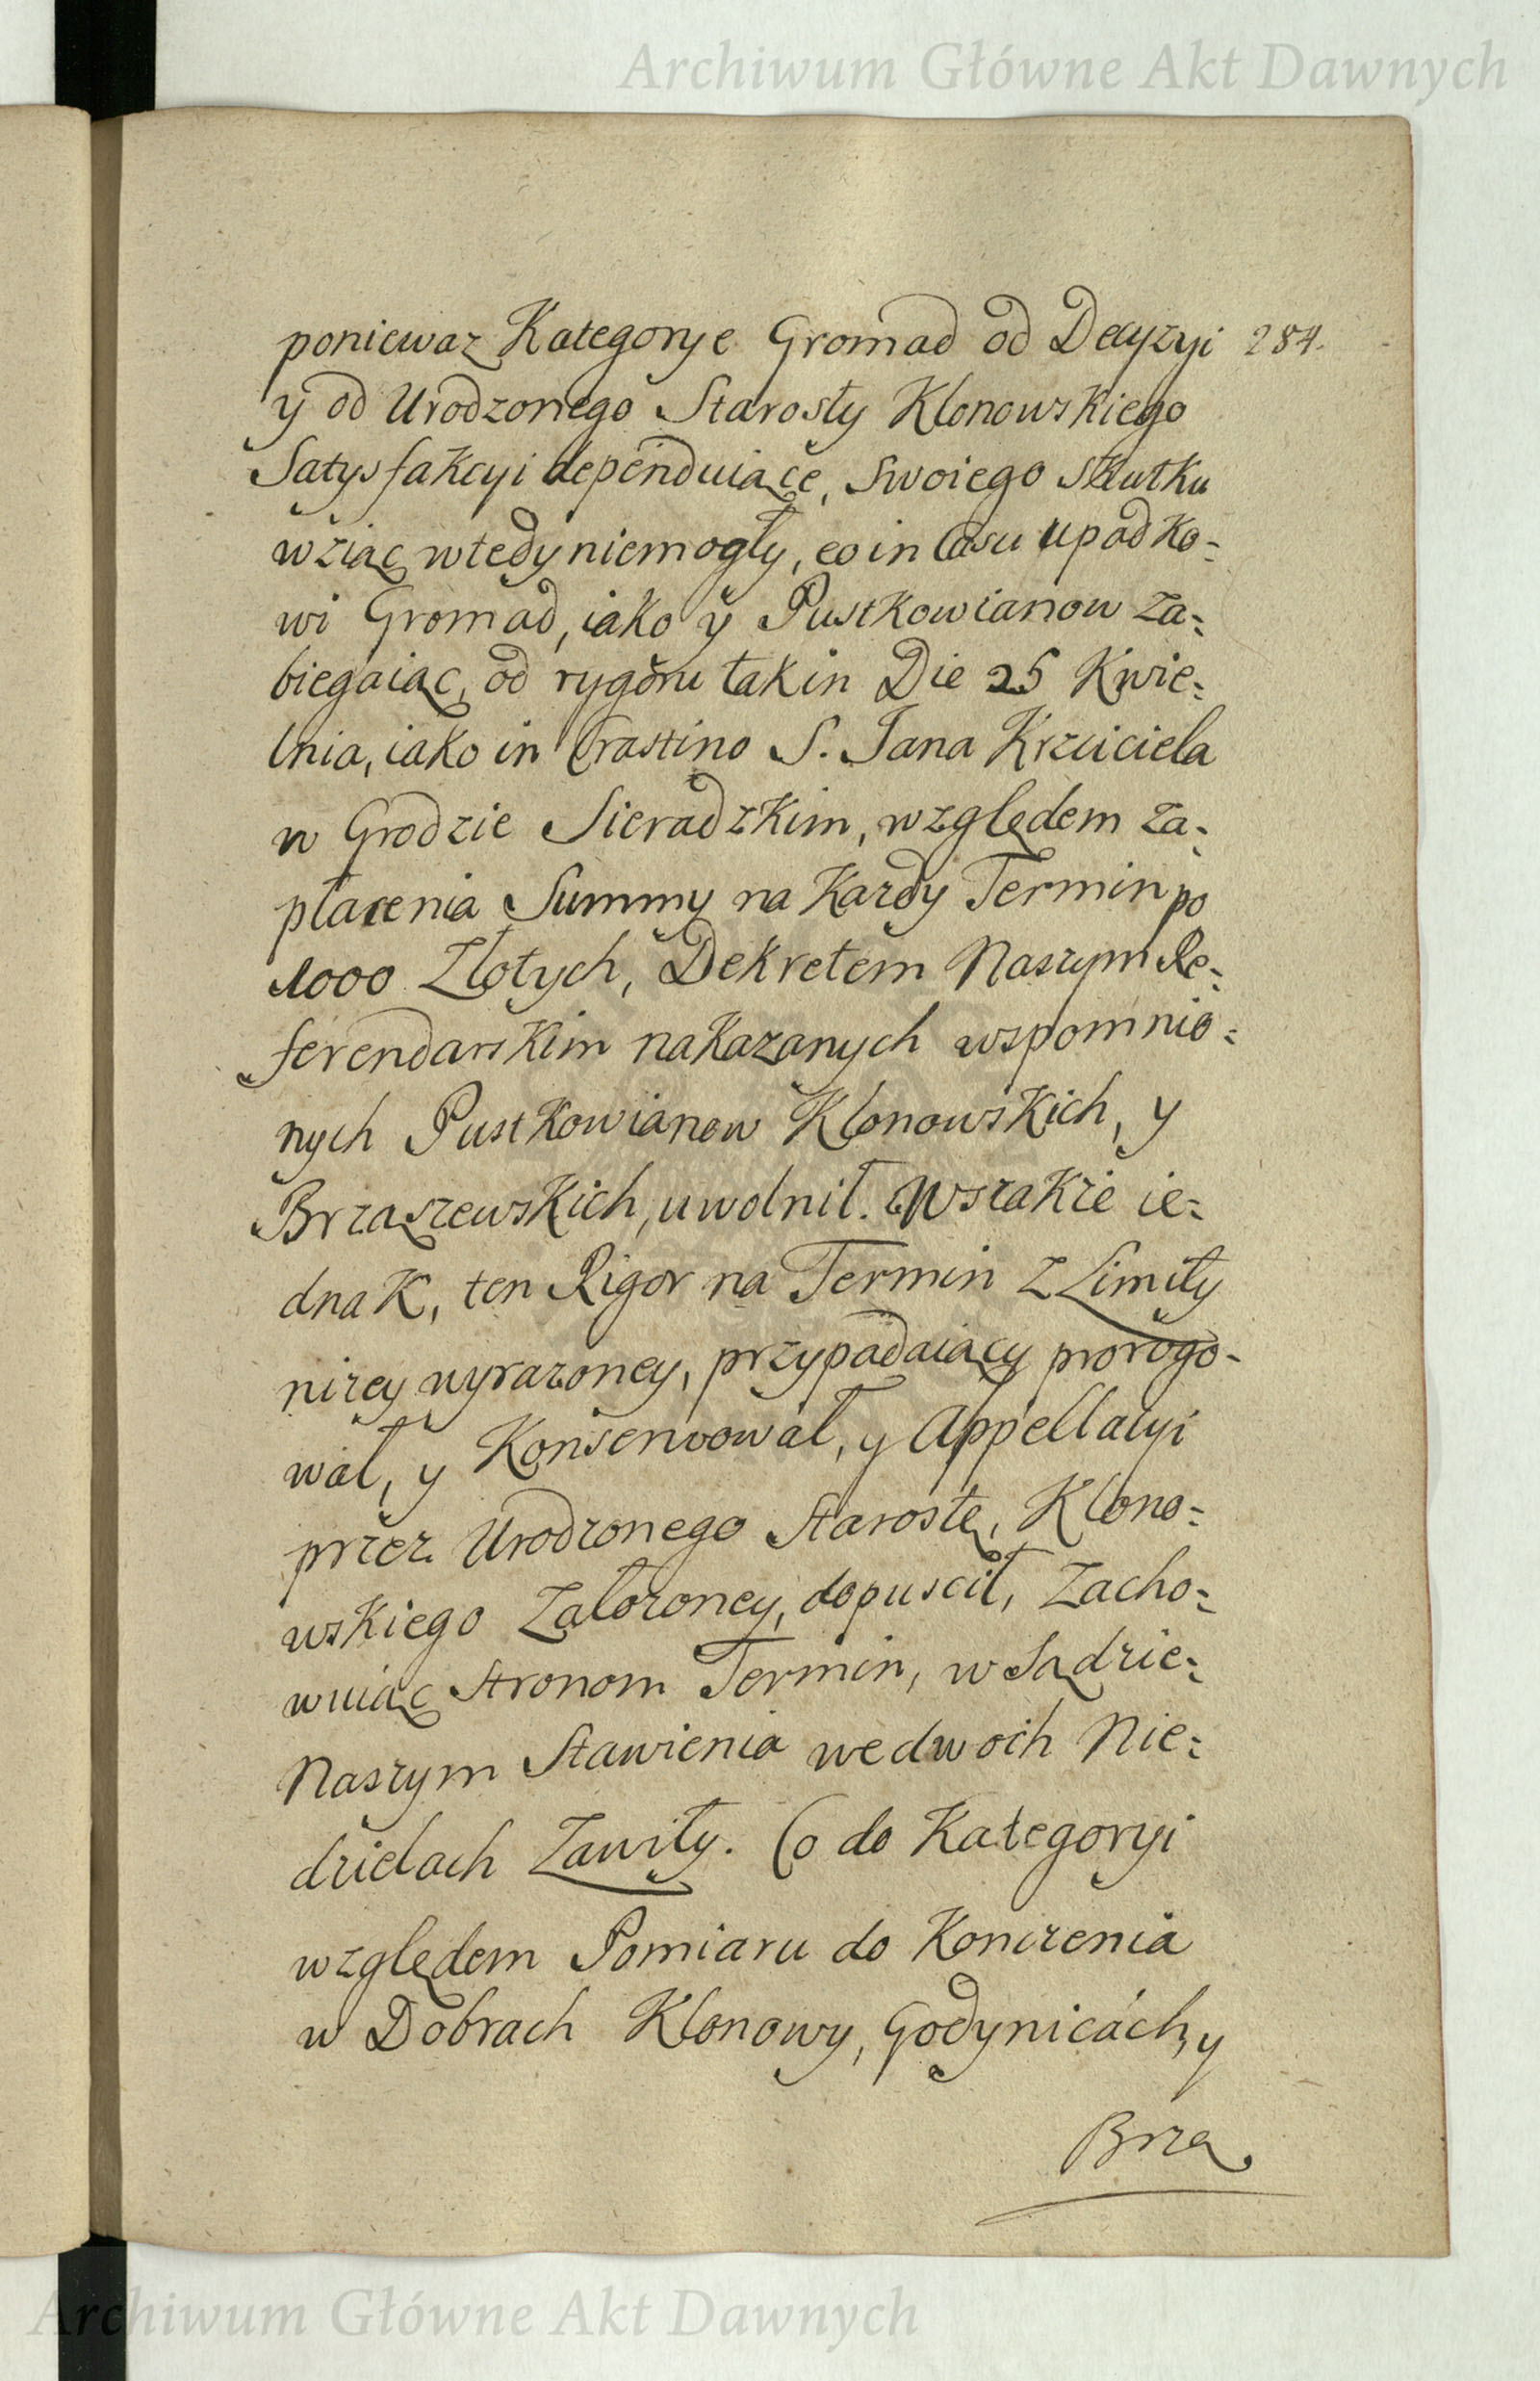 Archiwum Główne Akt Dawnych
poniewaz Kategorye Gromad od Decyzyi 284.
y od Urodzonego Starosty Klonowskiego
Satysfakcyi dependuiące, swoiego skutku
wziąc wtedy niemogły, eo in Casu upadko-
wi Gromad, iako y Pustkowianow za-
biegaiąc, od rygoru tak in Die 25 Kwie-
tnia, iako in Crastino S. Jana Krzciciela
w Grodzie Sieradzkim, względem za-
płacenia Summy na Kazdy Termin po
1000 Złotych, Dekretem Naszym Re-
ferendarskim nakazanych wspomnio-
nych Pustkowianow Klonowskich, y
Brząszewskich, uwolnił. Wszakze ie-
dnak, ten Rigor na Termin z Limity
nizey wyrazoney, przypadaiący prorogo-
wał, y Konserwował, y Appellacyi
przez Urodzonego Starostę, Klono-
wskiego Załozoney, dopuscił, Zacho-
wuiąc Stronom Termin, w Sądzie-
Naszym Stawienia we dwoch Nie-
dzielach Zawity. Co do Kategoryi
względem Pomiaru do Konczenia
w Dobrach Klonowy, Godynicách, y
Brzą
Archiwum Główne Akt Dawnych